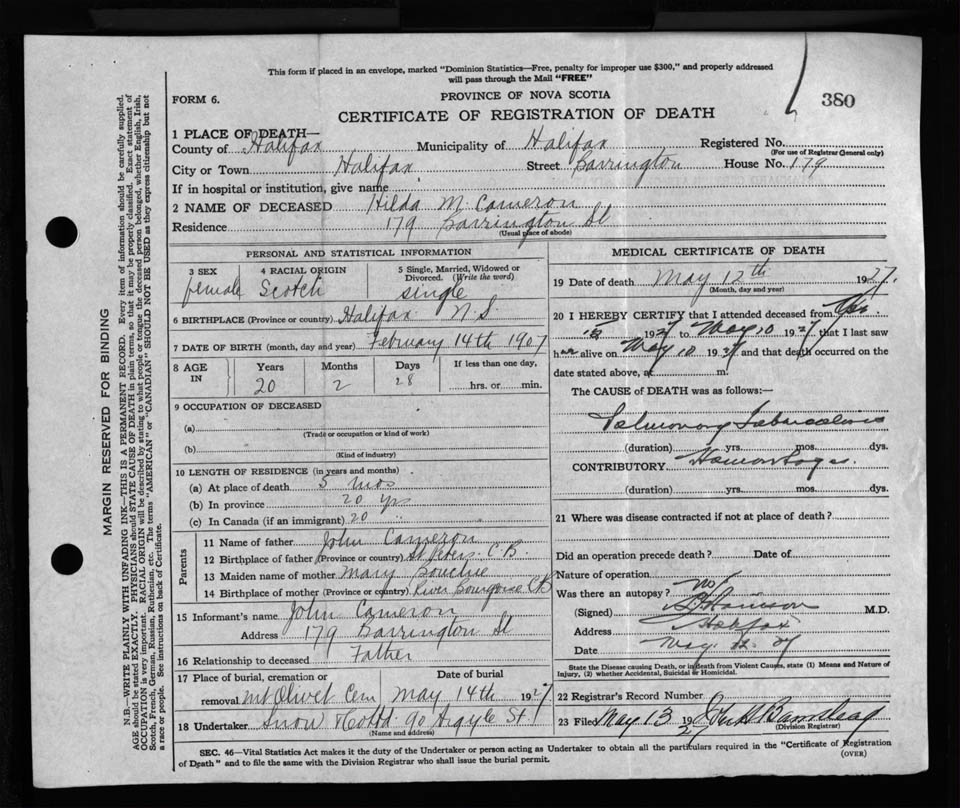 This form if placed in an envelope, marked "Dominion Statistics—Free, penalty for improper use $300," and properly addressed
will pass through the Mail "FREE"
FORM 6.
PROVINCE OF NOVA SCOTIA
380
CERTIFICATE OF REGISTRATION OF DEATH
1 PLACE OF DEATH—
County of Halifax Municipality of Halifax Registered No.
(For use of Registrar General only)
City or Town Halifax Street Barrington House No. 179
If in hospital or institution, give name
2 NAME OF DECEASED Hilda M. Cameron
Residence 179 Barrington St
(Usual place of abode)
PERSONAL AND STATISTICAL INFORMATION
3 SEX 4 RACIAL ORIGIN 5 Single, Married, Widowed or Divorced. (Write the word)
female Scotch single
6 BIRTHPLACE (Province or country) Halifax N.S.
7 DATE OF BIRTH (month, day and year) February 14th 1907
8 AGE IN Years Months Days If less than one day,
20 2 28 hrs. or min.
9 OCCUPATION OF DECEASED
(a)
(Trade or occupation or kind of work)
(b)
(Kind of industry)
10 LENGTH OF RESIDENCE (in years and months)
(a) At place of death 5 mos
(b) In province 20 yrs
(c) In Canada (if an immigrant) 20
Parents
11 Name of father John Cameron
12 Birthplace of father (Province or country) St Peters C.B.
13 Maiden name of mother Mary Bouchie
14 Birthplace of mother (Province or country) River Bourgeoise C B
15 Informant's name John Cameron
Address 179 Barrington St
16 Relationship to deceased Father
17 Place of burial, cremation or removal Date of burial
Mt Olivet Cem May 14th 1927
18 Undertaker Snow & Co Ltd. 90 Argyle St.
(Name and address)
MEDICAL CERTIFICATE OF DEATH
19 Date of death May 12th 1927.
(Month, day and year)
20 I HEREBY CERTIFY that I attended deceased from
1927 to May 10 1927, that I last saw
her alive on May 10 1927 and that death occurred on the
date stated above, at m.
The CAUSE OF DEATH was as follows:—
Pulmonary Tuberculosis
(duration) yrs. mos. dys.
CONTRIBUTORY Hemorrhages
(duration) yrs. mos. dys.
21 Where was disease contracted if not at place of death?
Did an operation precede death? Date of
Nature of operation
Was there an autopsy? no
(Signed) M.D.
Address Halifax
Date May 12. 27
State the Disease causing Death, or in death from Violent Causes, state (1) Means and Nature of
Injury, (2) whether Accidental, Suicidal or Homicidal.
22 Registrar's Record Number
23 Filed May 13 1927
(Division Registrar)
SEC. 46—Vital Statistics Act makes it the duty of the Undertaker or person acting as Undertaker to obtain all the particulars required in the "Certificate of Registration
of Death" and to file the same with the Division Registrar who shall issue the burial permit.
(OVER)
MARGIN RESERVED FOR BINDING
N.B.—WRITE PLAINLY WITH UNFADING INK—THIS IS A PERMANENT RECORD. Every item of information should be carefully supplied.
AGE should be stated EXACTLY. PHYSICIANS should STATE CAUSE OF DEATH in plain terms, so that it may be properly classified. Exact statement of
OCCUPATION is very important. RACIAL ORIGIN will be described by stating to what people or tongue the deceased person belonged, whether English, Irish,
Scotch, French, German, Russian, Ruthenian, etc. The terms "AMERICAN" or "CANADIAN" SHOULD NOT BE USED as they express citizenship but not
a race or people. See instructions on back of Certificate.